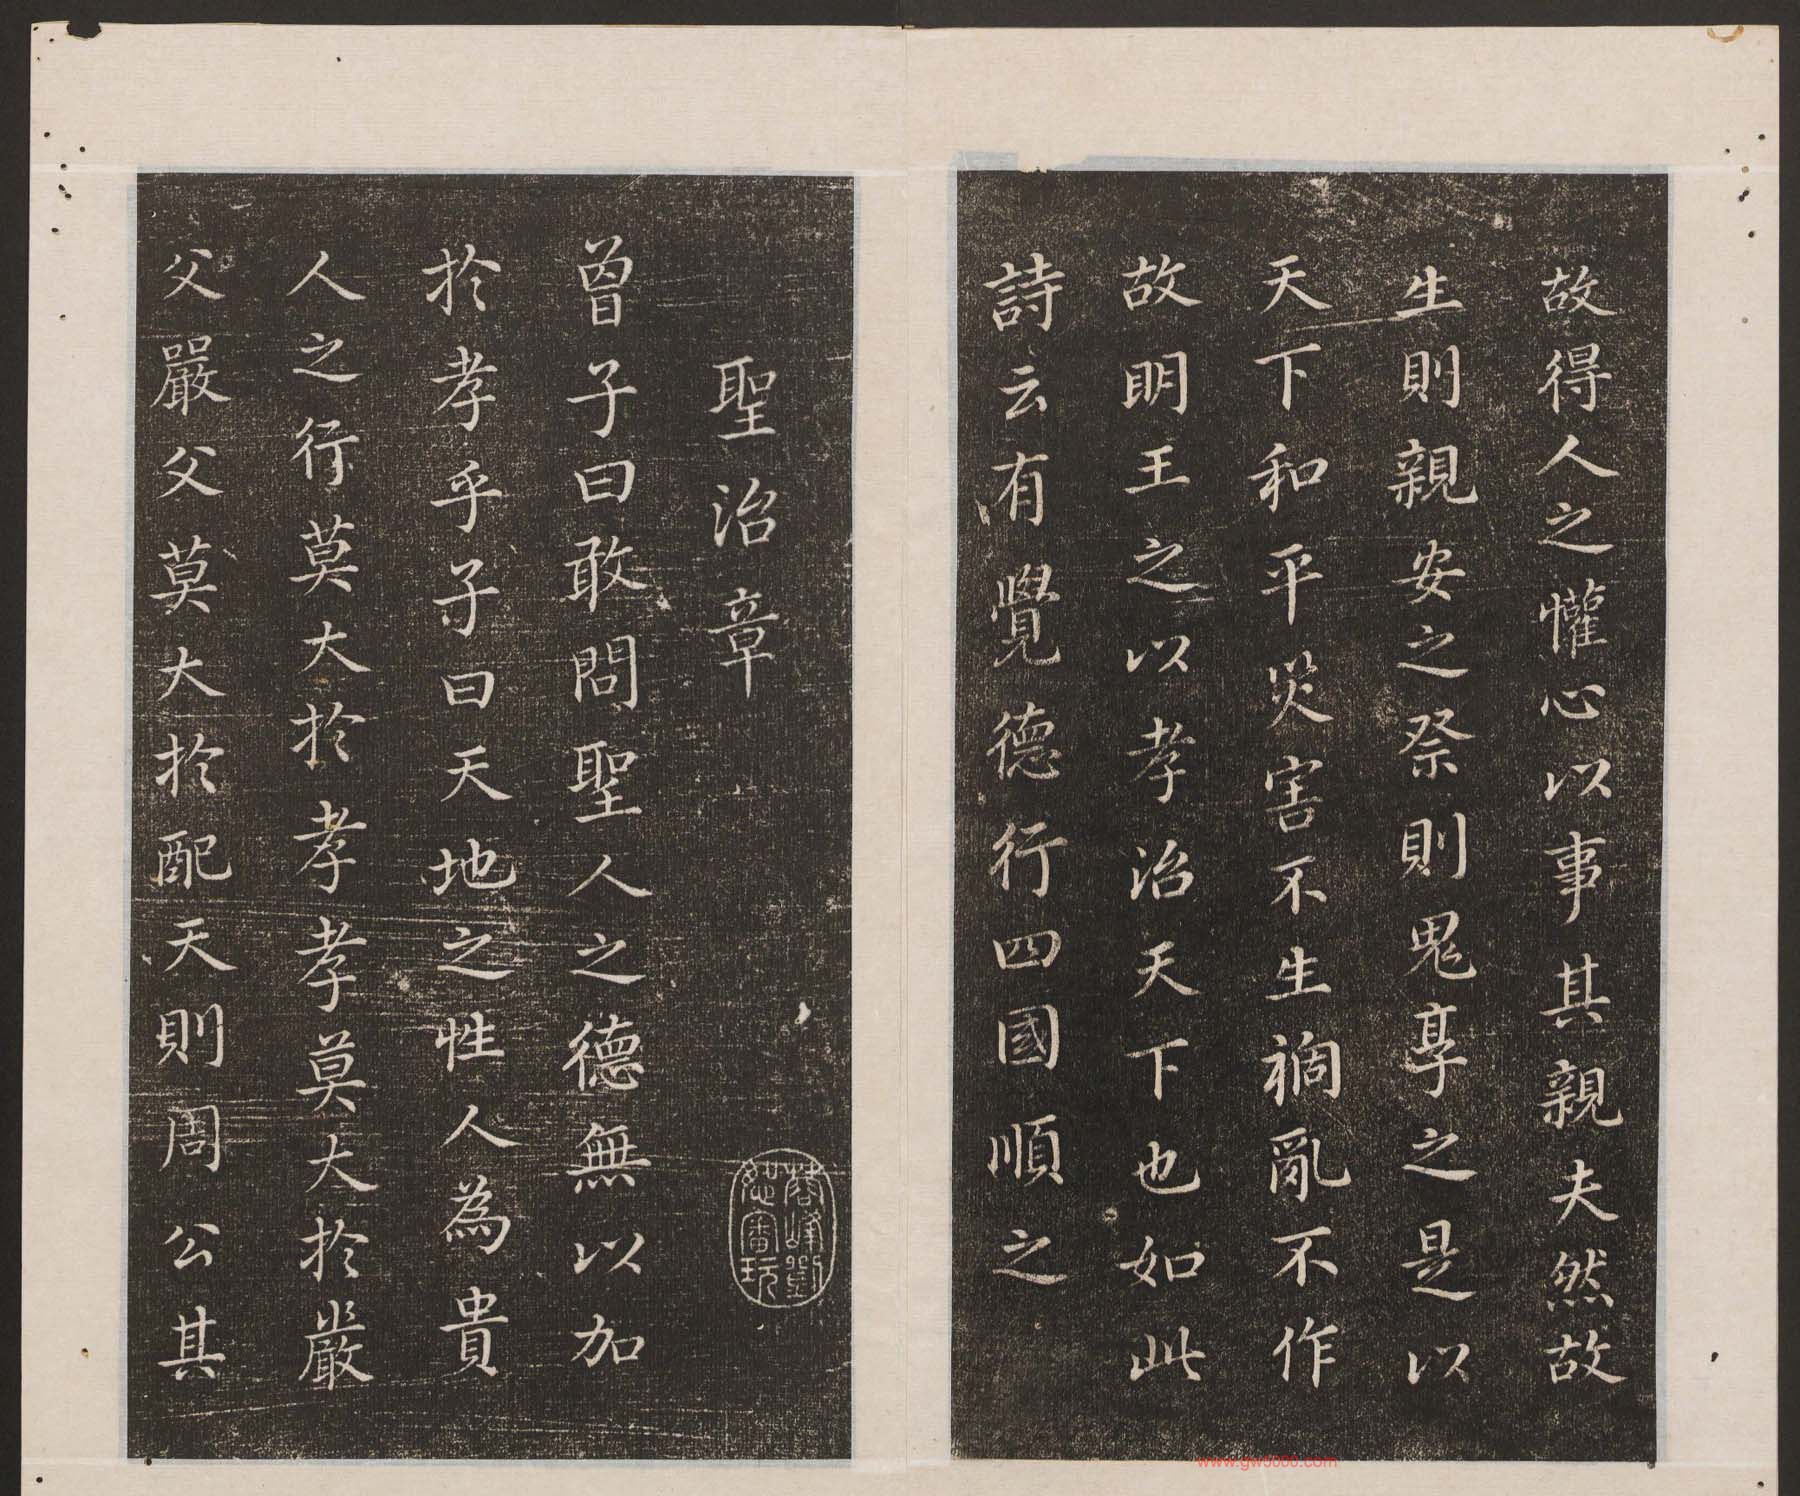 故得人之懽心以事其親夫然故
生則親安之祭則鬼享之是以
天下和平災害不生禍亂不作
故明王之以孝治天下也如此
詩云有覺德行四國順之
聖治章
曾子曰敢問聖人之德無以加
於孝乎子曰天地之性人為貴
人之行莫大於孝孝莫大於嚴
父嚴父莫大於配天則周公其
www.gw5000.com